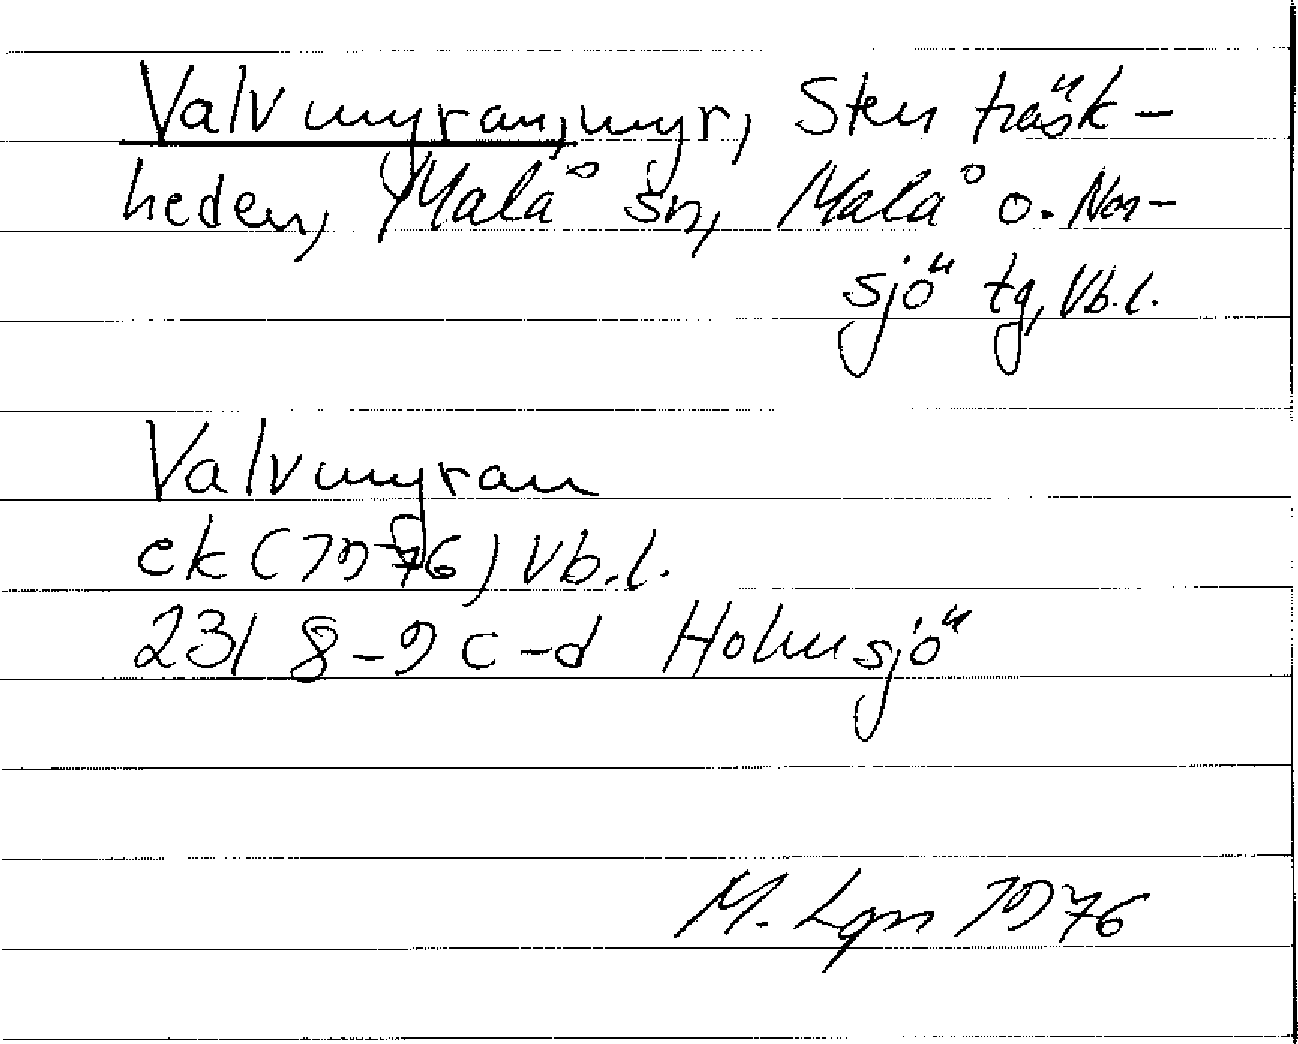 Valvmyran, myr, Stenträsk-
heden, Malå sn, Malå o. Nor-
sjö tg, Vb.l.
Valvmyran
ek (1976) Vb.l.
23I 8-9 c-d Holmsjö
M. Lgn 1976